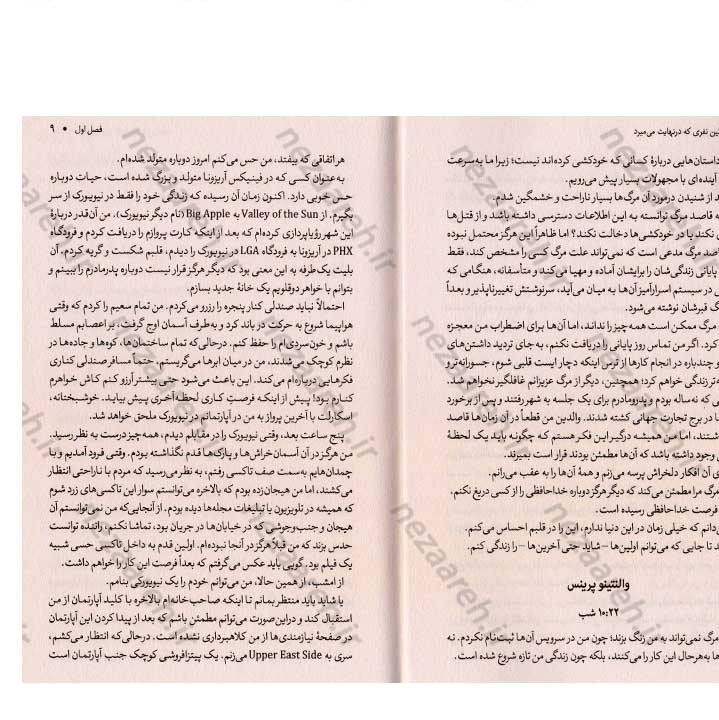 ین نفری که درنهایت می‌میرد
داستان‌هایی دربارهٔ کسانی که خودکشی کرده‌اند نیست؛ زیرا ما به‌سرعت
آینده‌ای با مجهولات بسیار پیش می‌رویم.
د از شنیدن درمورد آن مرگ‌ها بسیار ناراحت و خشمگین شدم.
ه قاصد مرگ توانسته به این اطلاعات دسترسی داشته باشد و از قتل‌ها
ی نکند یا در خودکشی‌ها دخالت نکند؟ اما ظاهراً این هرگز محتمل نبوده
اصد مرگ مدعی است که نمی‌تواند علت مرگ کسی را مشخص کند، فقط
پایانی زندگی‌شان را برایشان آماده و مهیا می‌کند و متأسفانه، هنگامی که
ی در سیستم اسرارآمیز آن‌ها به میان می‌آید، سرنوشتش تغییرناپذیر و بعداً
گ قبرشان نوشته می‌شود.
مرگ ممکن است همه‌چیز را نداند، اما آن‌ها برای اضطراب من معجزه
کرد. اگر من تماس روز پایانی را دریافت نکنم، به جای تردید داشتن‌های
و چندباره در انجام کارها از ترس اینکه دچار ایست قلبی شوم، جسورانه‌تر و
ه‌تر زندگی خواهم کرد؛ همچنین، دیگر از مرگ عزیزانم غافلگیر نخواهم شد.
ی که نه‌ساله بودم و پدرومادرم برای یک جلسه به شهر رفتند و پس از برخورد
ا در برج تجارت جهانی کشته شدند. والدین من قطعاً در آن زمان‌ها قاصد
شتند، اما من همیشه درگیر این فکر هستم که چگونه باید یک لحظهٔ
ی وجود داشته باشد که آن‌ها مطمئن بودند قرار است بمیرند.
ی آن افکار دلخراش پرسه می‌زنم و همهٔ آن‌ها را به عقب می‌رانم.
مرگ مرا مطمئن می‌کند که دیگر هرگز دوباره خداحافظی را از کسی دریغ نکنم.
فرصت خداحافظی رسیده است.
‌دانم که خیلی زمان در این دنیا ندارم، این را در قلبم احساس می‌کنم.
د تا جایی که می‌توانم اولین‌ها – شاید حتی آخرین‌ها – را زندگی کنم.
والنتینو پرینس
۱۰:۲۲ شب
مرگ نمی‌تواند به من زنگ بزند؛ چون من در سرویس آن‌ها ثبت‌نام نکردم. نه
ها به‌هرحال این کار را می‌کنند، بلکه چون زندگی من تازه شروع شده است.
فصل اول • ۹
هر اتفاقی که بیفتد، من حس می‌کنم امروز دوباره متولد شده‌ام.
به‌عنوان کسی که در فینیکس آریزونا متولد و بزرگ شده است، حیات دوباره
حس خوبی دارد. اکنون زمان آن رسیده که زندگی خود را فقط در نیویورک از سر
بگیرم. از Valley of the Sun به Big Apple (نام دیگر نیویورک)، من آن‌قدر دربارهٔ
این شهر رؤیاپردازی کرده‌ام که بعد از اینکه کارت پروازم را دریافت کردم و فرودگاه
PHX در آریزونا به فرودگاه LGA در نیویورک را دیدم، قلبم شکست و گریه کردم. آن
بلیت یک‌طرفه به این معنی بود که دیگر هرگز قرار نیست دوباره پدرمادرم را ببینم و
بتوانم با خواهر دوقلویم یک خانهٔ جدید بسازم.
احتمالاً نباید صندلی کنار پنجره را رزرو می‌کردم. من تمام سعیم را کردم که وقتی
هواپیما شروع به حرکت در باند کرد و به‌طرف آسمان اوج گرفت، بر اعصابم مسلط
باشم و خون‌سردی‌ام را حفظ کنم. درحالی‌که تمام ساختمان‌ها، کوه‌ها و جاده‌ها در
نظرم کوچک می‌شدند، من در میان ابرها می‌گریستم. حتماً مسافر صندلی کناری
فکرهایی درباره‌ام می‌کند. این باعث می‌شود حتی بیشتر آرزو کنم کاش خواهرم
کنارم بود! پیش از اینکه فرصتِ کاری لحظه‌آخری پیش بیاید. خوشبختانه،
اسکارلت با آخرین پرواز به من در آپارتمانم در نیویورک ملحق خواهد شد.
پنج ساعت بعد، وقتی نیویورک را در مقابلم دیدم، همه‌چیز درست به نظر رسید.
من هرگز در آن آسمان‌خراش‌ها و پارک‌ها قدم نگذاشته بودم. وقتی فرود آمدیم و با
چمدان‌هایم به‌سمت صف تاکسی رفتم، به نظر می‌رسید که مردم با ناراحتی انتظار
می‌کشند، اما من هیجان‌زده بودم که بالاخره می‌توانستم سوار این تاکسی‌های زرد شوم
که همیشه در تلویزیون یا تبلیغات مجله‌ها دیده بودم. از آنجایی‌که من نمی‌توانستم آن
هیجان و جنب‌وجوشی که در خیابان‌ها در جریان بود، تماشا نکنم، راننده توانست
حدس بزند که من قبلاً هرگز در آنجا نبوده‌ام. اولین قدم به داخل تاکسی حسی شبیه
یک فیلم بود. گویی باید عکس می‌گرفتم که بعداً فرصت این کار را خواهم داشت.
از امشب، از همین حالا، من می‌توانم خودم را یک نیویورکی بنامم.
یا شاید باید منتظر بمانم تا اینکه صاحب‌خانه‌ام بالاخره با کلید آپارتمان از من
استقبال کند و دراین‌صورت می‌توانم مطمئن باشم که بعد از پیدا کردن این آپارتمان
در صفحهٔ نیازمندی‌ها از من کلاهبرداری نشده است. درحالی‌که انتظار می‌کشم،
سری به Upper East Side می‌زنم. یک پیتزافروشی کوچک جنب آپارتمان است